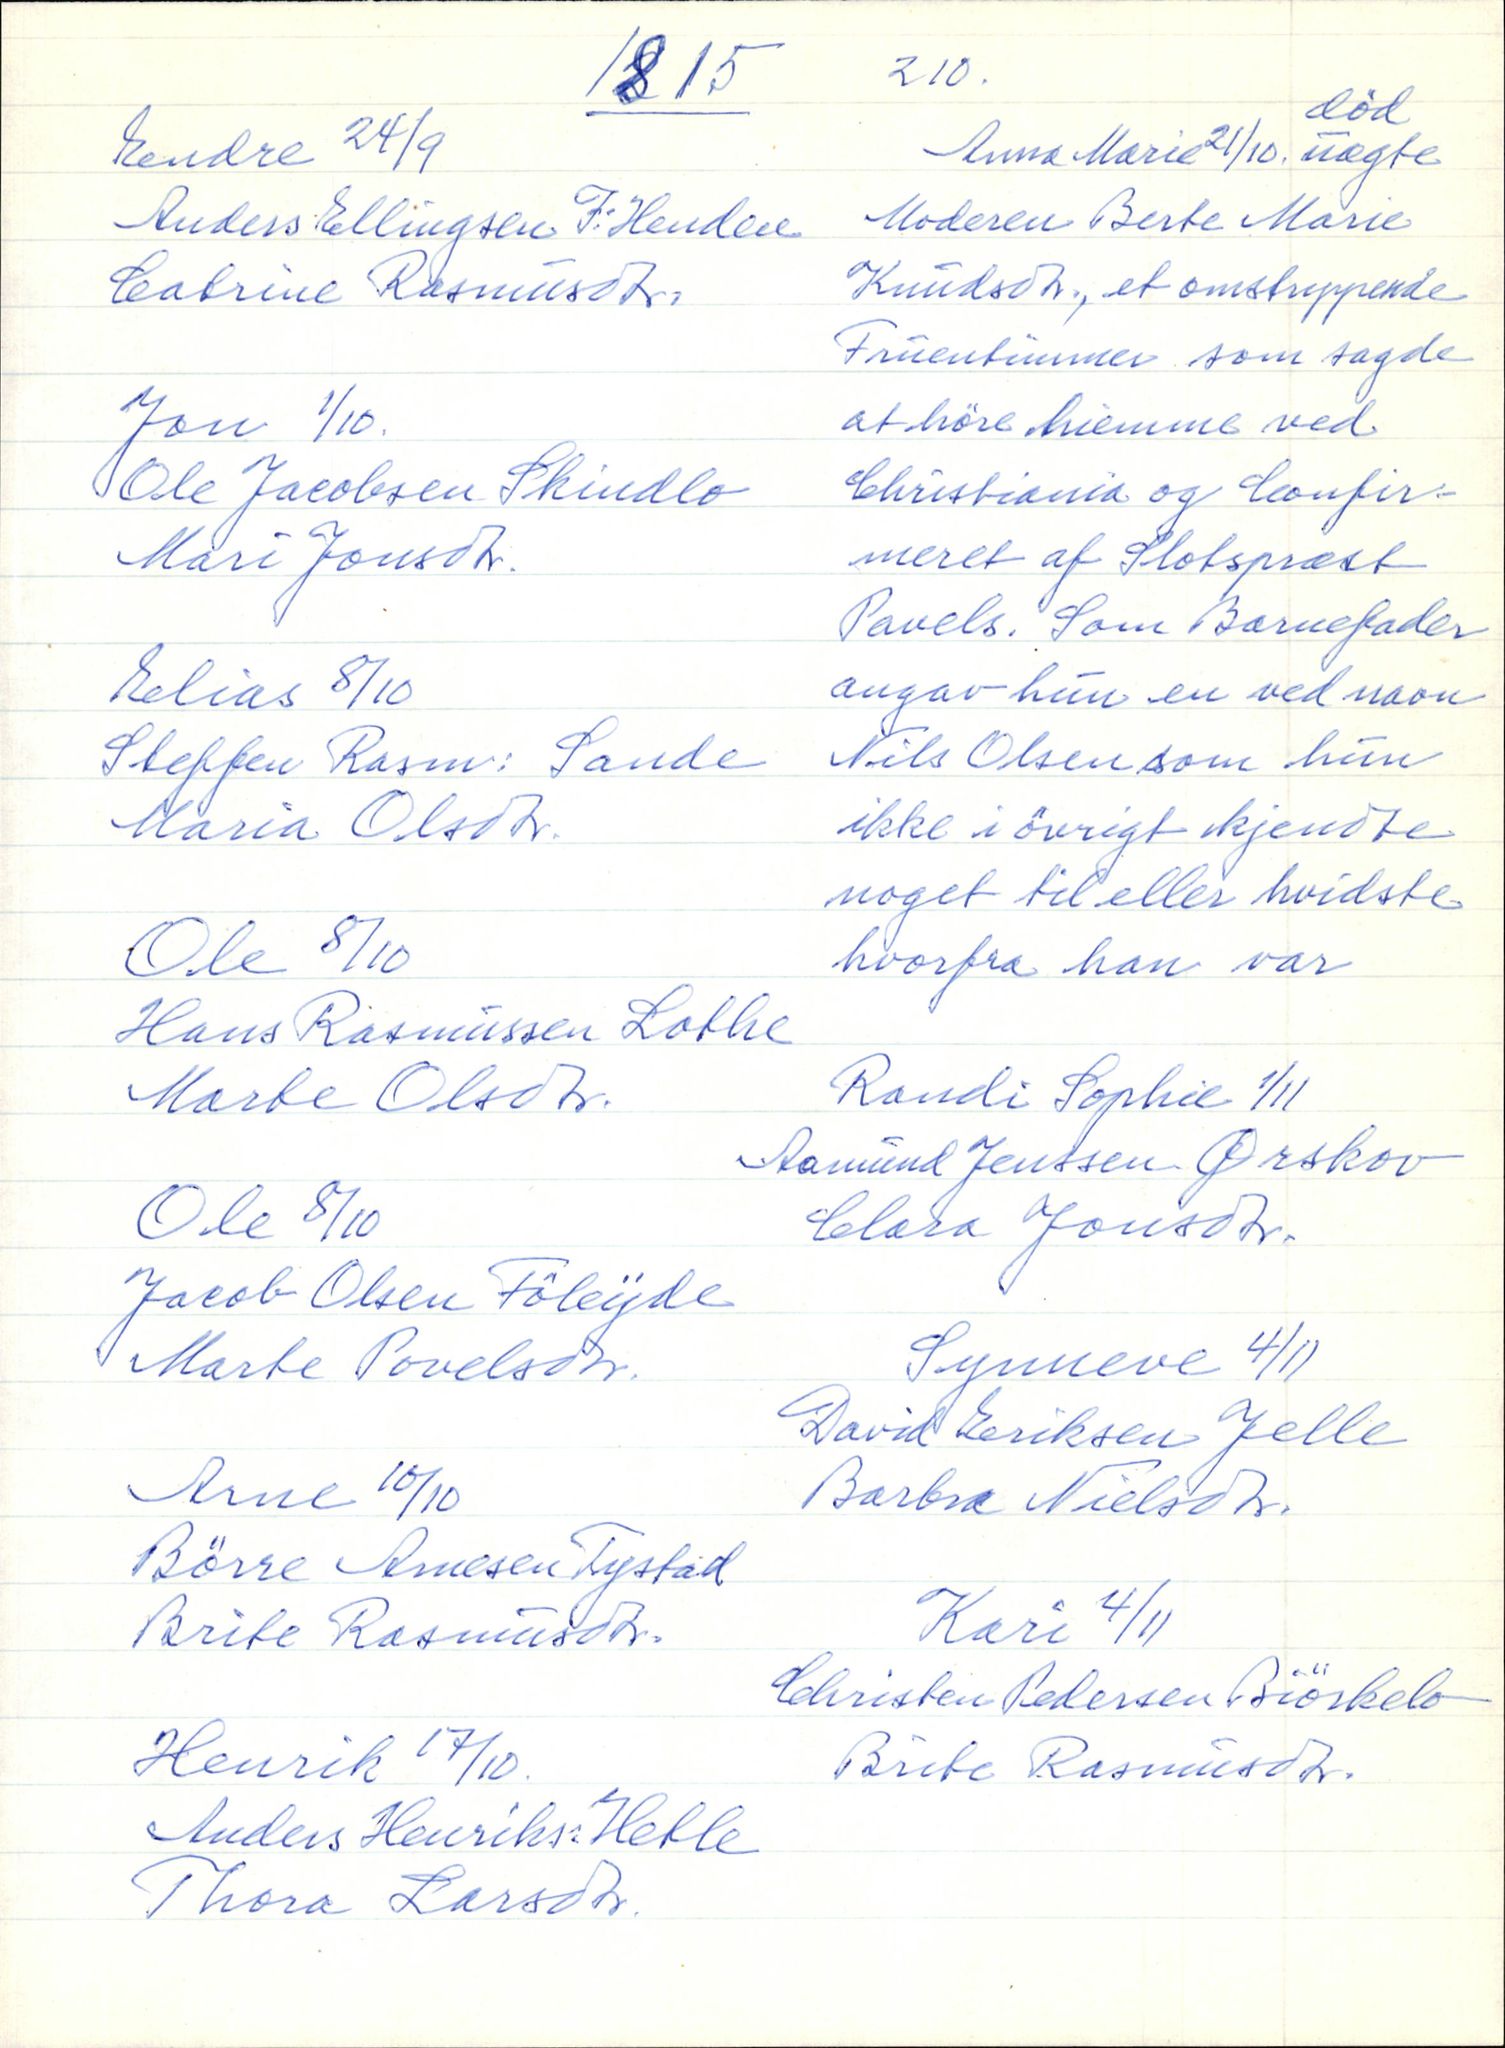 1815
210.
Endre 24/9
Anders Ellingsen F: Henden
Catrine Rasmusdtr.
Jon 1/10.
Ole Jacobsen Skindlo
Mari Jonsdtr.
Elias 8/10
Steffen Rasm: Sande
Maria Olsdtr.
Ole 8/10
Hans Rasmussen Lothe
Marte Olsdtr.
Ole 8/10
Jacob Olsen Föleÿde
Marte Povelsdtr.
Arne 10/10
Börre Arnesen Tystad
Brite Rasmusdtr.
Henrik 17/10.
Anders Henriks: Hetle
Thora Larsdtr.
död
Anna Marie 21/10. uægte
Moderen Berte Marie
Knudsdtr., et omstrippende
Fruentimmer som sagde
at höre hiemme ved
Christiania og Confir-
meret af Slotspræst
Pavels. Som Barnefader
angav hun en ved navn
Nils Olsen som hun
ikke i övrigt kjendte
noget til eller hvidste
hvorfra han var
Randi Sophie 1/11
Aamund Jenssen Ørskov
Clara Jonsdtr.
Synneve 4/11
David Eriksen Jelle
Barbra Nielsdtr.
Kari 4/11
Christen Pedersen Biörkelo
Brite Rasmusdtr.